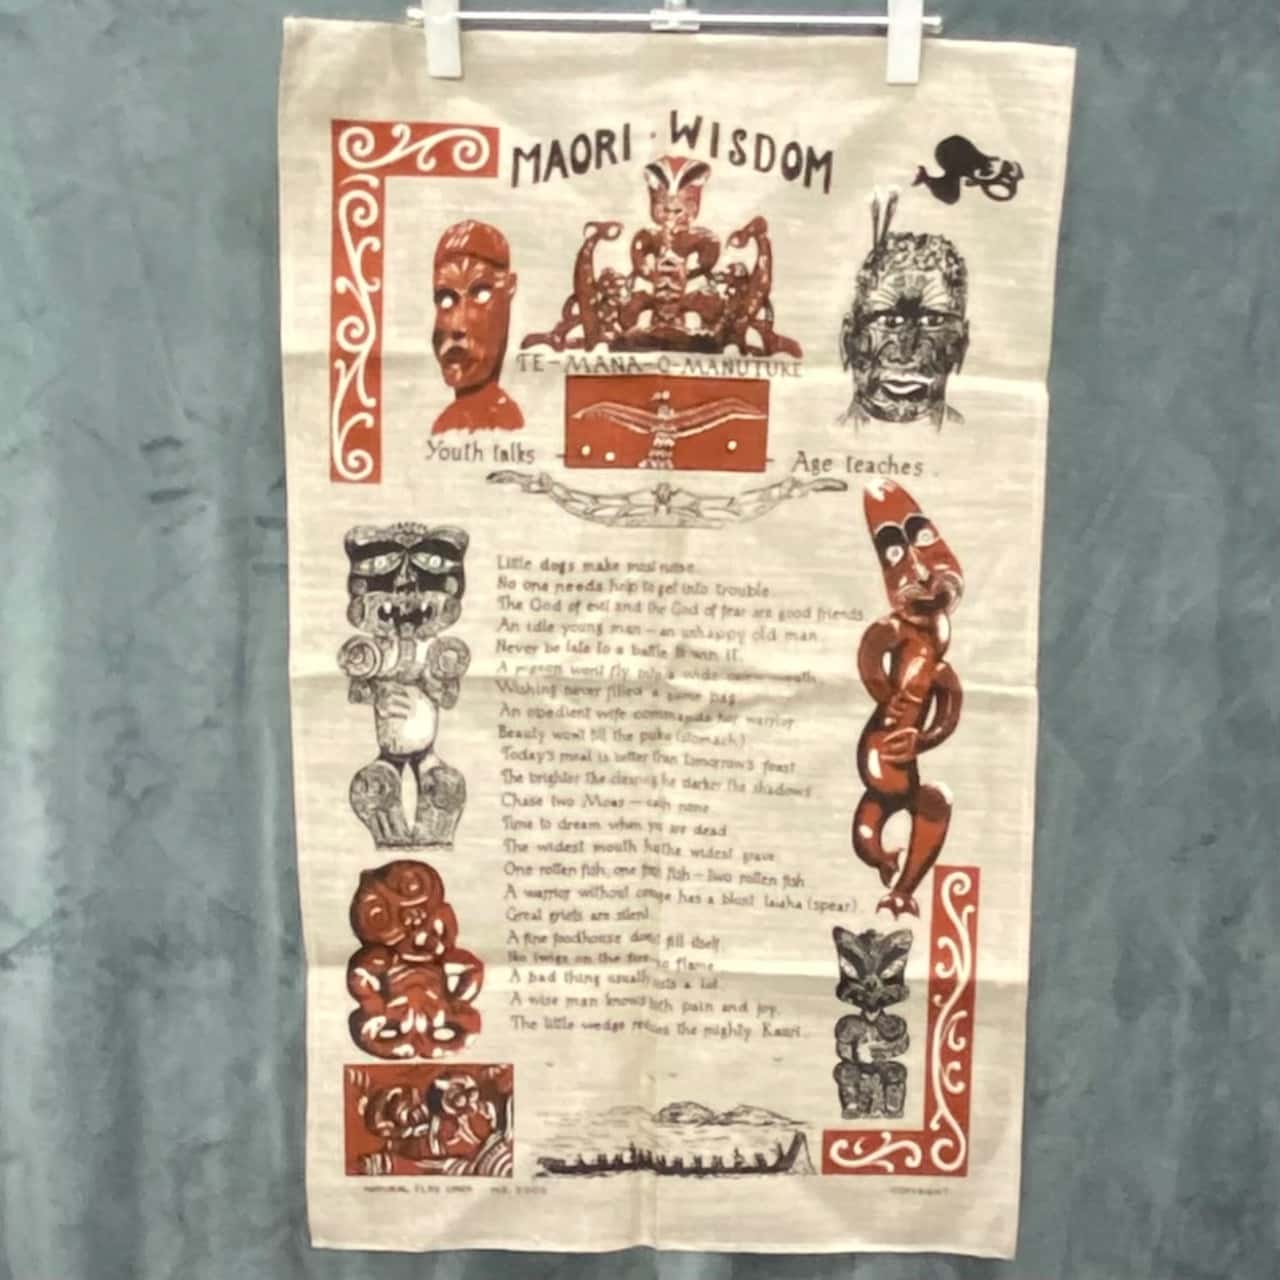 MAORI · WISDOM
TE-MANA-O-MANUTUKE
Youth talks
Age teaches.
Little dogs make most noise.
No one needs help to get into trouble.
The God of evil and the God of fear are good friends.
An idle young man — an unhappy old man.
Never be late to a battle to win it.
A pigeon wont fly into a wide mouth.
Wishing never filled a game bag.
An obedient wife commands her warrior.
Beauty wont fill the puku (stomach)
Today's meal is better than tomorrow's feast
The brighter the clearing the darker the shadows.
Chase two Moas — catch none
Time to dream when you are dead
The widest mouth has the widest grave.
One rotten fish, one fresh fish — two rotten fish
A warrior without courage has a blunt taiaha (spear).
Great griefs are silent.
A fine foodhouse doesn't fill itself.
No twigs on the fire — no flame
A bad thing usually lasts a lot.
A wise man knows both pain and joy.
The little wedge reduces the mighty Kauri.
NATURAL FLAX LINEN
COPYRIGHT